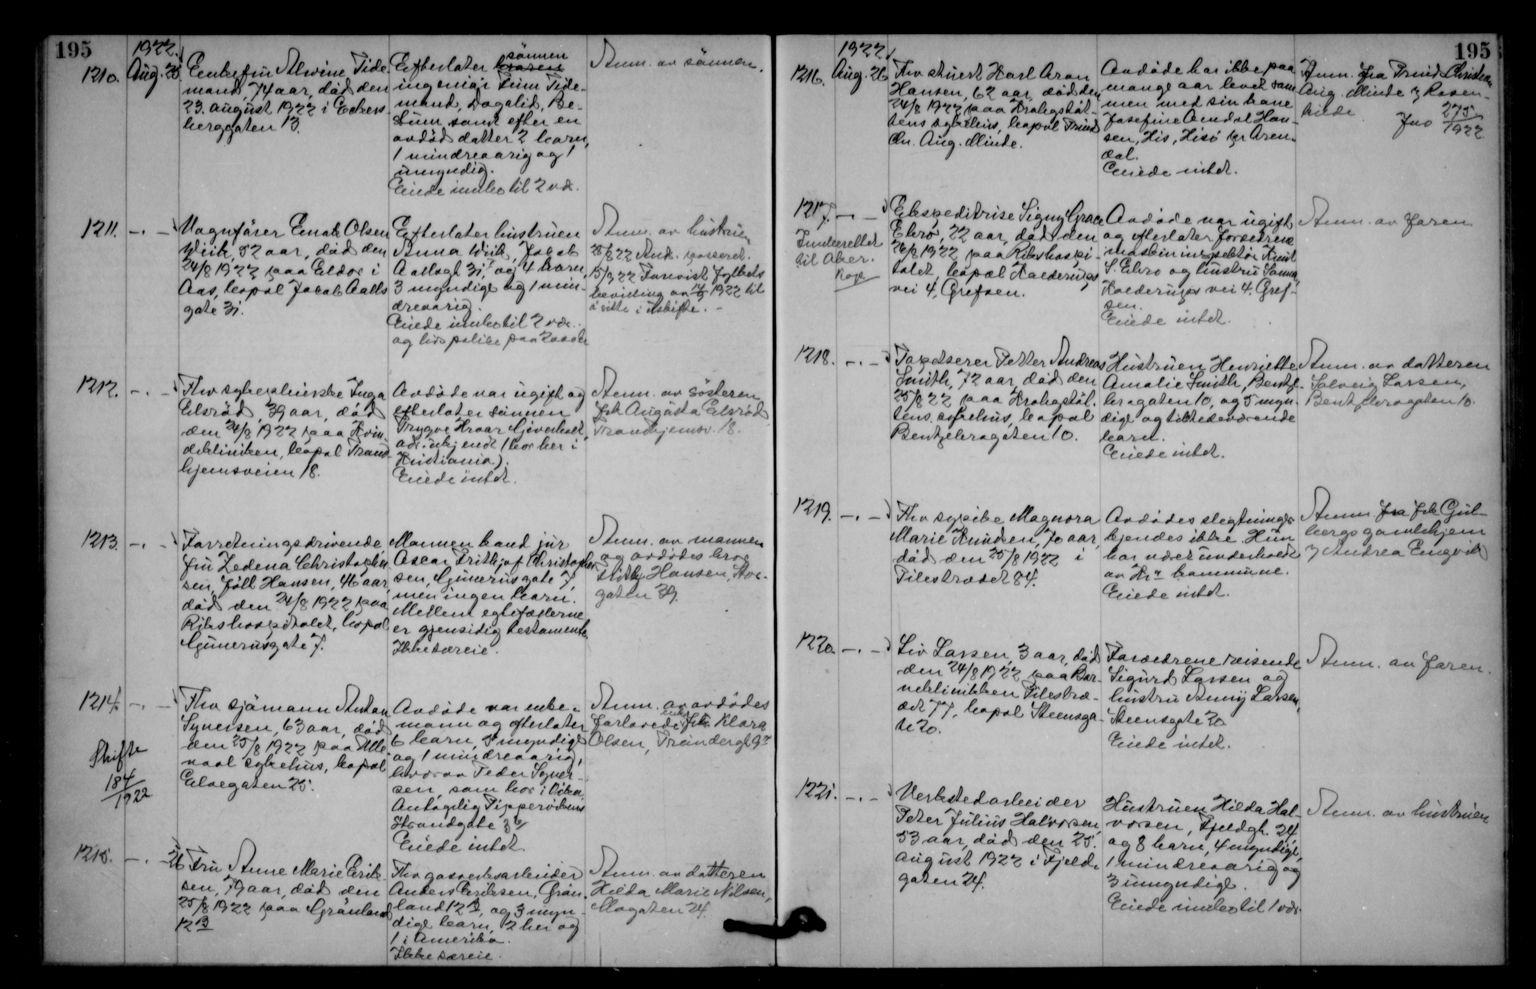 195
1922
1210. Aug. 25 Enkefru Alvine Tide-
mand, 74 aar, död den
23. august 1922 i Eckers-
berggaten 13.
Efterlater sönnen
ingeniör Finn Tide-
mand, Dagalid, Be-
stum, samt efter en
avdöd datter 2 barn,
1 mindreaarig og 1
umyndig.
Eiede indbo til 2 vær.
Anm. av sönnen.
1211. -"- Vognförer Enok Olsen
Wiik, 52 aar, död den
24/8 1922 paa Eldor i
Aas, bopæl Jacob Aalls
gate 31.
Efterlater hustruen
Anna Wiik, Jacob
Aallsgt 31, og 4 barn,
3 myndige og 1 min-
dreaarig.
Eiede indbo til 2 vær.
og livspolise paa
Anm. av hustruen
i uskifte. -
1212. -"- Fhv sykepleierske Inga
Elsröd, 39 aar, död
den 24/8 1922 paa Kvin-
deklinikken, bopæl Trond-
hjemsveien 18.
Avdöde var ugift og
efterlater sönnen
Trygve Hroar
(bor her i
Kristiania).
Eiede intet.
Anm. av sösteren
frk Augusta Elsröd
Trondhjemsv. 18.
1213. -"- Forretningsdrivende
fru Zedena Christopher-
sen, föd Hansen, 46 aar,
död den 24/8 1922 paa
Rikshospitalet, bopæl
Gunerusgate 7.
Mannen cand jur
Oscar Frithjof Christopher-
sen, Gunerusgate 7,
men ingen barn.
Mellem egtefællerne
er gjensidig testamente
Ikke særeie.
Anm. av mannen
og avdödes bror
Hansen, Stor-
gaten 39.
1214. -"- Fhv sjömann Anton
Syversen, 63 aar, död
den 25/8 1922 paa Ulle-
vaal sykehus, bopæl
Elvegaten 25.
Skifte
184/1922
Avdöde var enke-
mann og efterlater
6 barn, 5 myndige
og 1 mindreaarig,
hvorav Peder Syver-
sen, som bor i
Antagelig
Strandgate
Eiede intet.
Anm. av avdödes
forlovede frk Klara
Olsen,
1215. -"- 26 Fru Anne Marie Erik-
sen, 79 aar, död den
25/8 1922 paa Grönland
12 B
Fhv gasverksarbeider
Anders Eriksen, Grön-
land 12 B, og 3 myn-
dige barn, 2 her og
1 i Amerika.
Ikke særeie.
Anm. av datteren
Hilda Marie Nilsen,
Mogaten 24.
195
1922
1216. Aug. 26 Fhv stuert Karl Aron
Hansen, 62 aar, död den
24/8 1922 paa Krohgstöt-
tens sykehus, bopæl Prinds
Chr. Aug. Minde.
Avdöde har ikke paa
mange aar levet sam-
men med sin kone
Josefine Arendal Han-
sen, His, Hisö pr Aren-
dal.
Eiede intet.
Anm. fra Prinds Christian
Aug. Minde
Jno 275/1922
1217. -"- Ekspeditrise Signy Grace
Ekro, 22 aar, död den
1922 paa Rikshospi-
talet, bopæl Kalderuds
vei 4, Grefsen.
til Aker.
Avdöde var ugift
og efterlater forældrene
maskininspektör Knut
S. Ekro og hustru
vei 4, Gref-
sen.
Eiede intet.
Anm. av faren
1218. -"- Tapetserer Petter Andreas
Smith, 72 aar, död den
25/8 22 paa Krohgstöt-
tens sykehus, bopæl
Bentzebrogaten 10.
Hustruen Henriette
Amalie Smith, Bentze-
brogaten 10, og 5 myn-
dige og tilstedeværende
barn.
Eiede intet.
Anm. av datteren
Solveig Larsen,
Bentzebrogaten 10.
1219. -"- Fhv sypike Magnora
Marie Knudsen, 70 aar,
död den 25/8 1922 i
Pilestrædet 84.
Avdödes slegtninger
kjendes ikke. Hun
har været underholdt
av Kr.a kommune.
Eiede intet.
Anm. fra frk Gul-
bergs gamlehjem
v Andrea Engvik
1220. -"- Liv Larsen, 3 aar, död
den 24/8 1922 paa Bar-
neklinikken Pilestræ-
det 77, bopæl Steensga-
te 20.
Forældrene reisende
Sigurd Larsen og
hustru Anny Larsen,
Steensgate 20
Eiede intet.
Anm. av faren.
1221. -"- Verkstedarbeider
Peter Julius Halvorsen,
53 aar, död den 25.
august 1922 i Fjeld-
gaten 24.
Hustruen Hilda Hal-
vorsen, Fjeldgt. 24
og 8 barn, 4 myndige,
1 mindreaarig og
3 umyndige.
Eiede indbo til 1 vær.
Anm. av hustruen